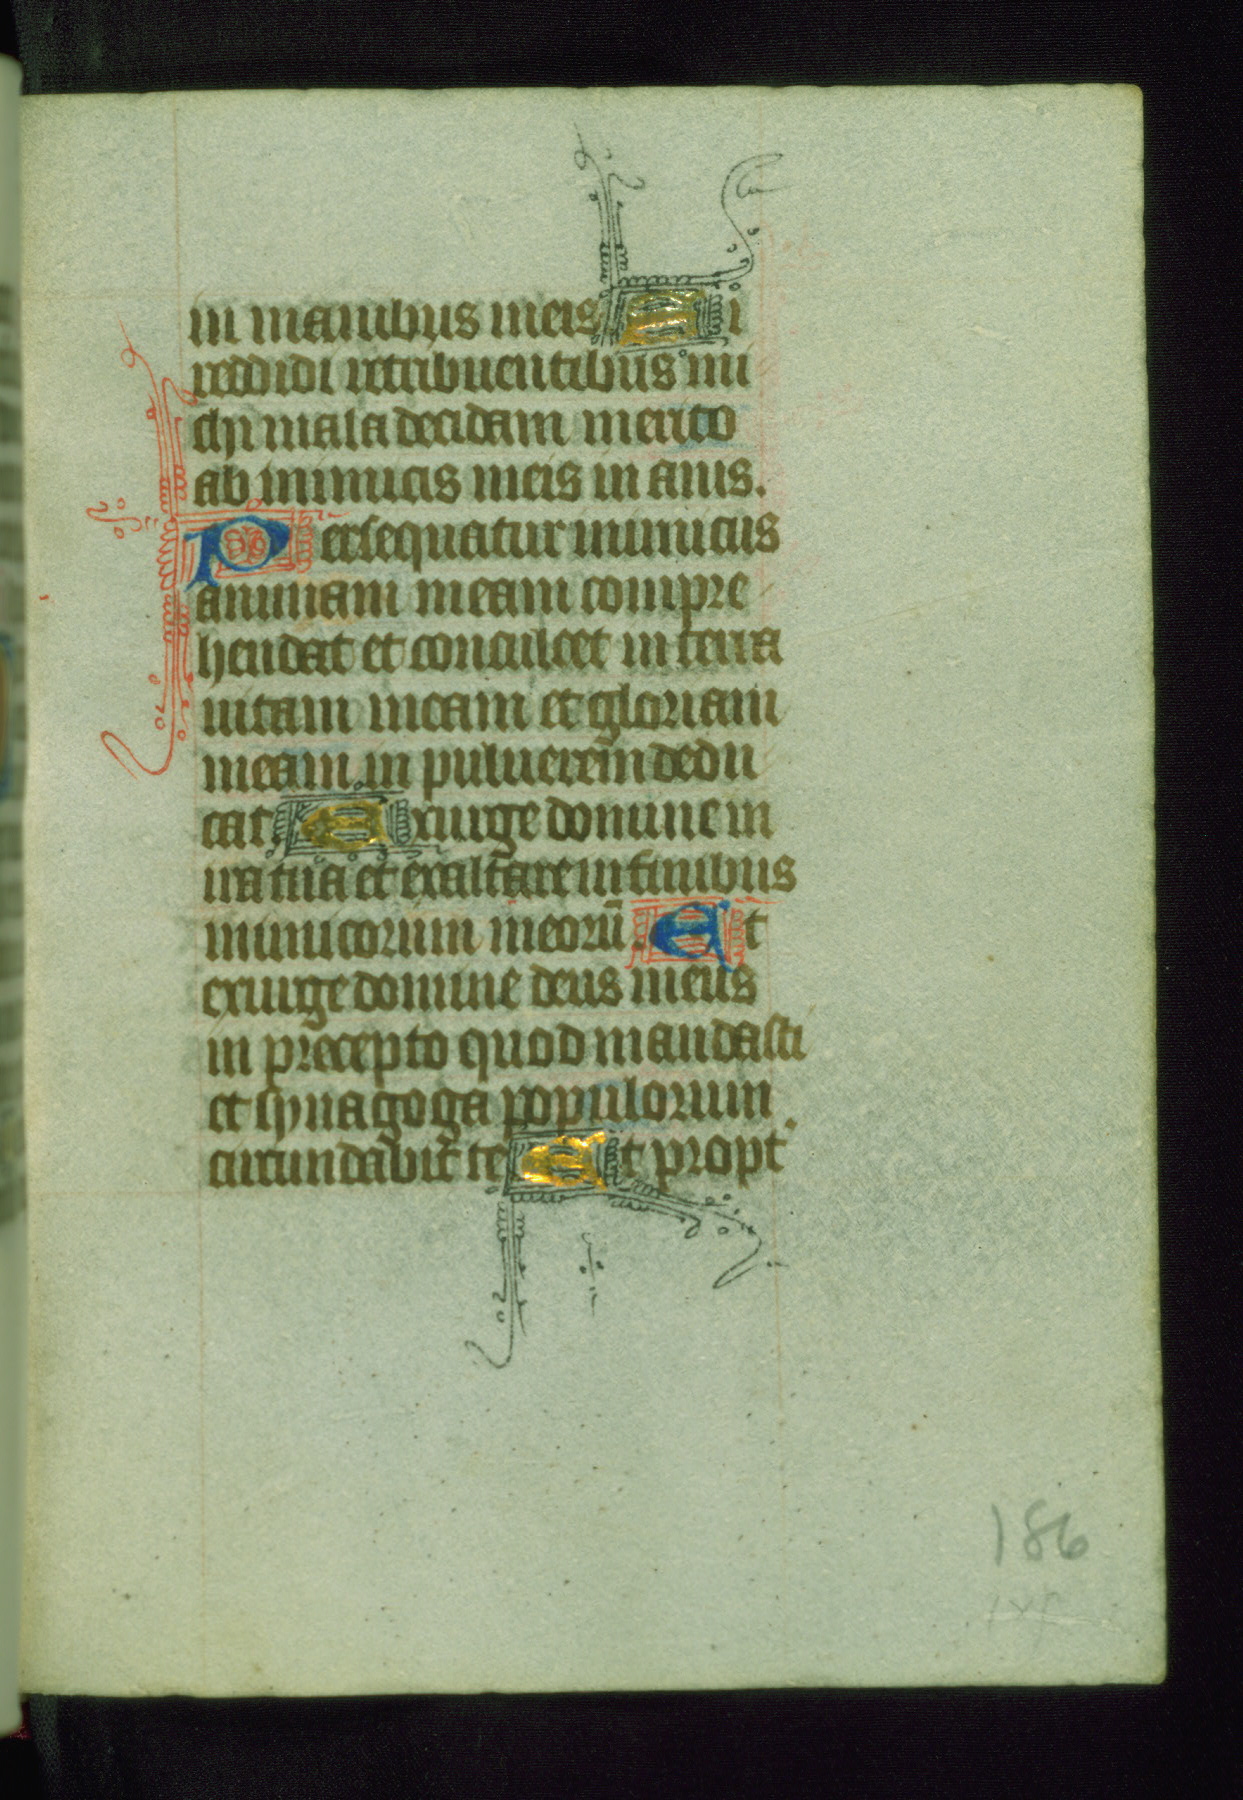 in manibus meis Si
reddidi retribuentibus mi
chi mala decidam merito
ab inimicis meis inanis.
Persequatur inimicus
animam meam compre
hendat et conculcet in terra
uitam meam et gloriam
meam in puluerem dedu
cat Exurge domine in
ira tua et exaltare in finibus
inimicorum meorū. Et
exurge domine deus meus
in precepto quod mandasti
et synagoga populorum
circundabit te Et propt
186